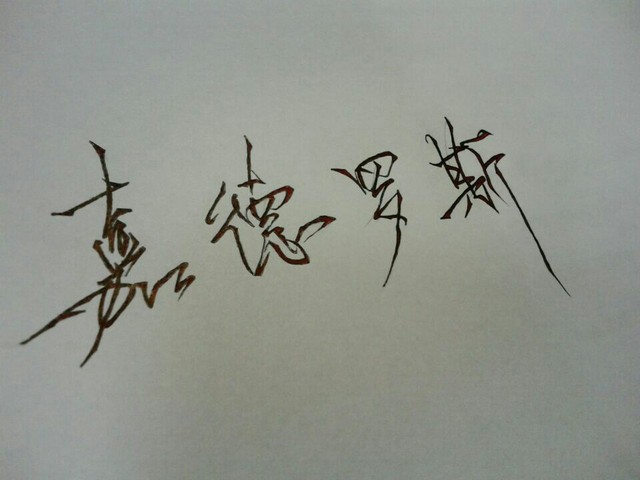 嘉德罗斯